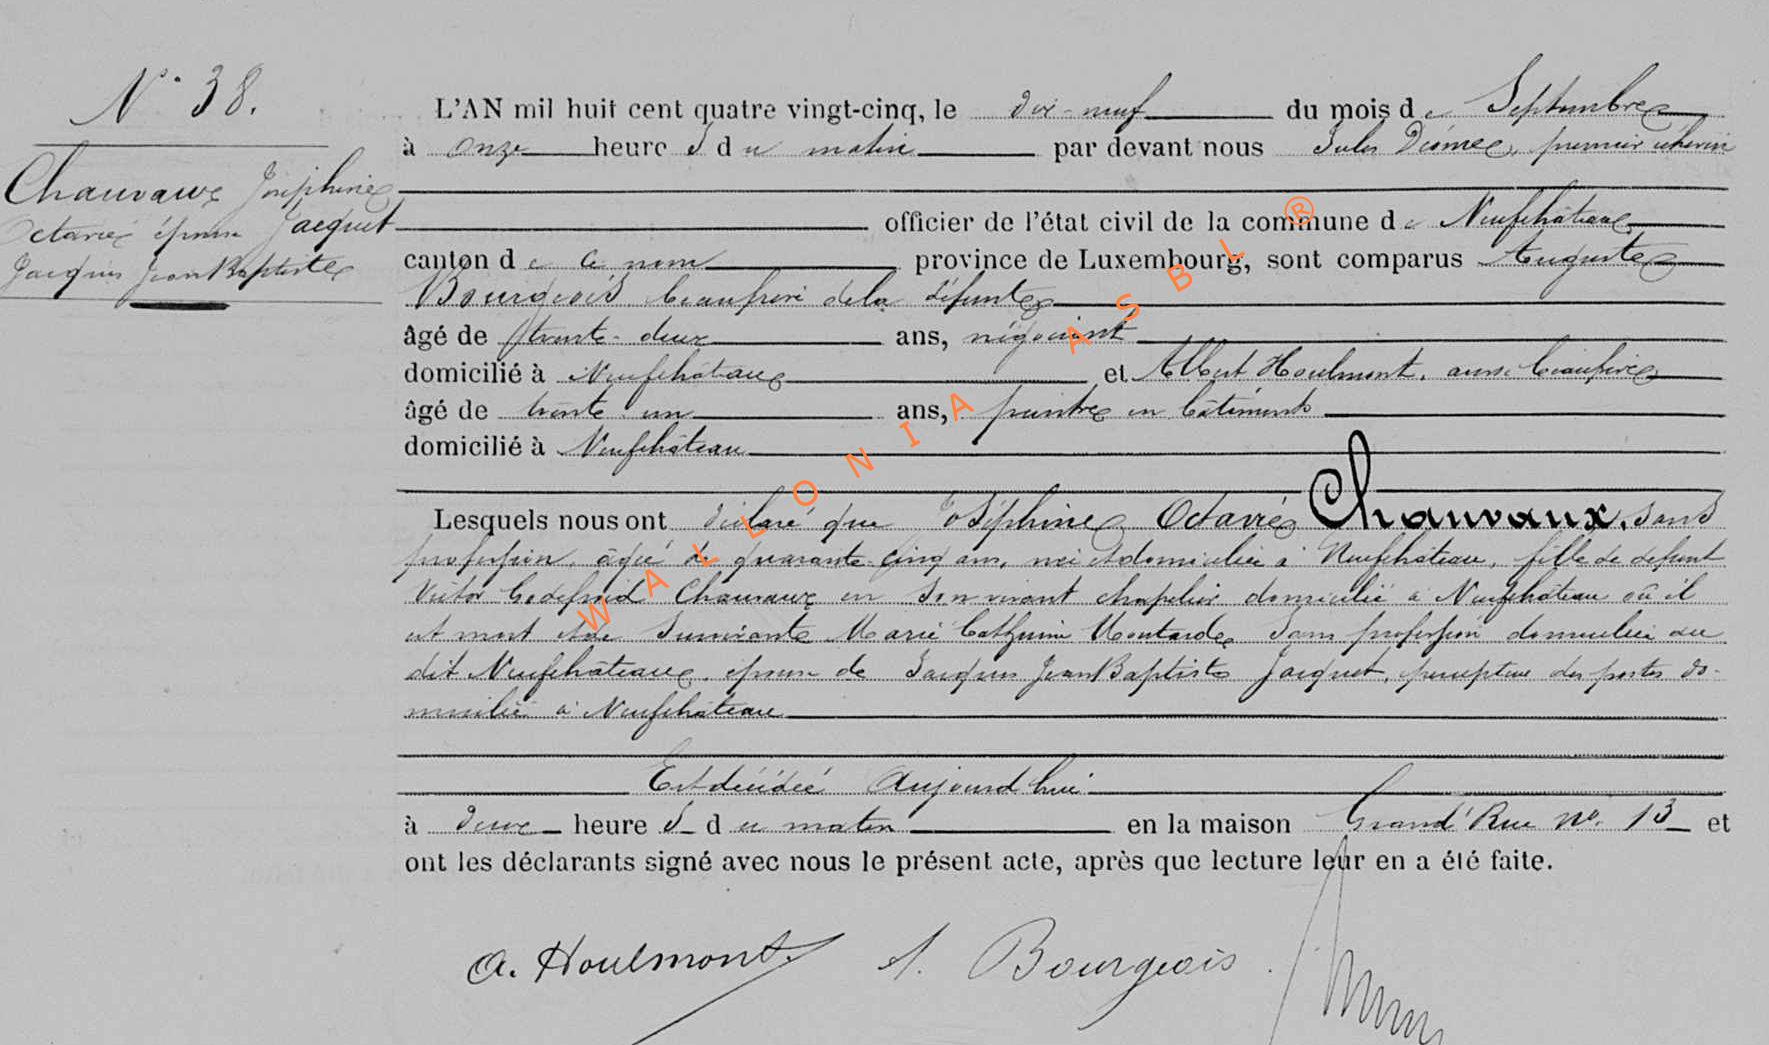 N° 38.
Chauvaux Joséphine
Octavie épouse Jacquet
Jacques Jean Baptiste
L'AN mil huit cent quatre vingt-cinq, le dix-neuf du mois de Septembre
à onze heure s du matin par devant nous Jules premier échevin
officier de l'état civil de la commune de Neufchâteau
canton de ce nom province de Luxembourg, sont comparus Auguste
Bourgeois beaufrère de la défunte
âgé de trente-deux ans, négociant
domicilié à Neufchâteau et Albert Houlmont, aussi beaufrère
âgé de trente un ans, peintre en bâtiments
domicilié à Neufchâteau
Lesquels nous ont déclaré que Joséphine Octavie Chauvaux, sans
profession, âgée de quarante cinq ans, née et domiciliée à Neufchâteau, fille de defunt
Victor Godefroid Chauvaux en son vivant chapelier domicilié à Neufchâteau où il
est mort et de survivante Marie Catherine Moutarde sans profession domiciliée au
dit Neufchâteau, épouse de Jacques Jean Baptiste Jacquet, percepteur des postes do-
micilié à Neufchâteau
Est décédée aujourd'hui
à deux heure s du matin en la maison Grand'Rue n°. 13 et
ont les déclarants signé avec nous le présent acte, après que lecture leur en a été faite.
A. Houlmont. A. Bourgeois.
WALLONIA ASBL ®